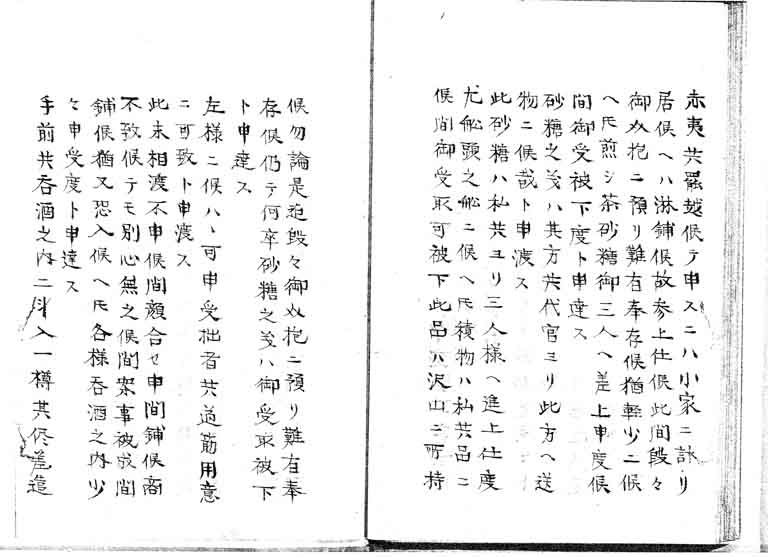 赤夷共罷越候テ申スニハ小家ニ計リ
居候ヘハ淋鋪候故参上仕候此間段々
御双抱ニ預リ難有奉存候猶軽少ニ候
ヘ𪜈煎シ茶砂糖御三人ヘ差上申度候
間御受被下度ト申達ス
砂糖之義ハ其方共代官ヨリ此方ヘ送
物ニ候哉ト申渡ス
此砂糖ハ私共ヨリ三人様ヘ進上仕度
尤舩頭之舩ニ候ヘ𪜈積物ハ私共品ニ
候間御受取可被下此品ハ沢山ニ所持
候勿論是迄段々御双抱ニ預リ難有奉
存候仍テ何卒砂糖之義ハ御受取被下
ト申達ス
左様ニ候ハヽ可申受拙者共道筋用意
ニ可致ト申渡ス
此末相渡不申候間顔合セ申間鋪候商
不致候テモ別心無之候間案事被成間
鋪候猶又恐入候ヘ𪜈各様呑酒之内少
々申受度ト申達ス
手前共呑酒之内二斗入一樽其侭差遣